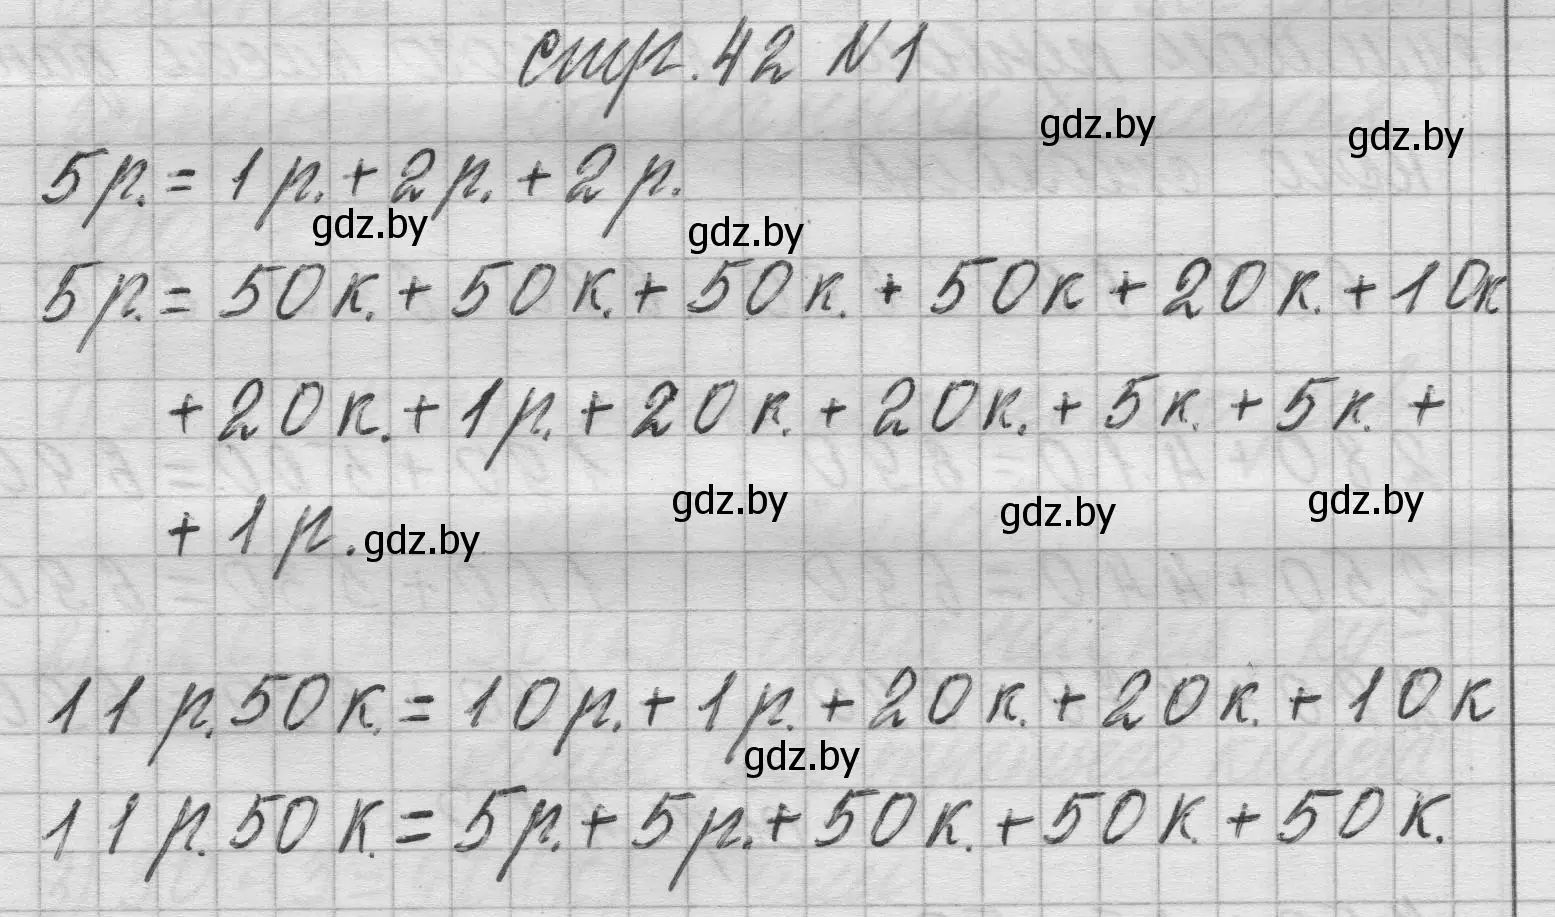 стр. 42 №1
gdz.by gdz.by
5р. = 1р. + 2р. + 2р.
gdz.by gdz.by
5р. = 50к. + 50к. + 50к. + 50к + 20к. + 10к
+ 20к. + 1р. + 20к. + 20к. + 5к. + 5к. +
gdz.by gdz.by gdz.by
+ 1р. gdz.by
11р. 50к. = 10р. + 1р. + 20к. + 20к. + 10к
gdz.by
11р. 50к. = 5р. + 5р. + 50к. + 50к + 50к.